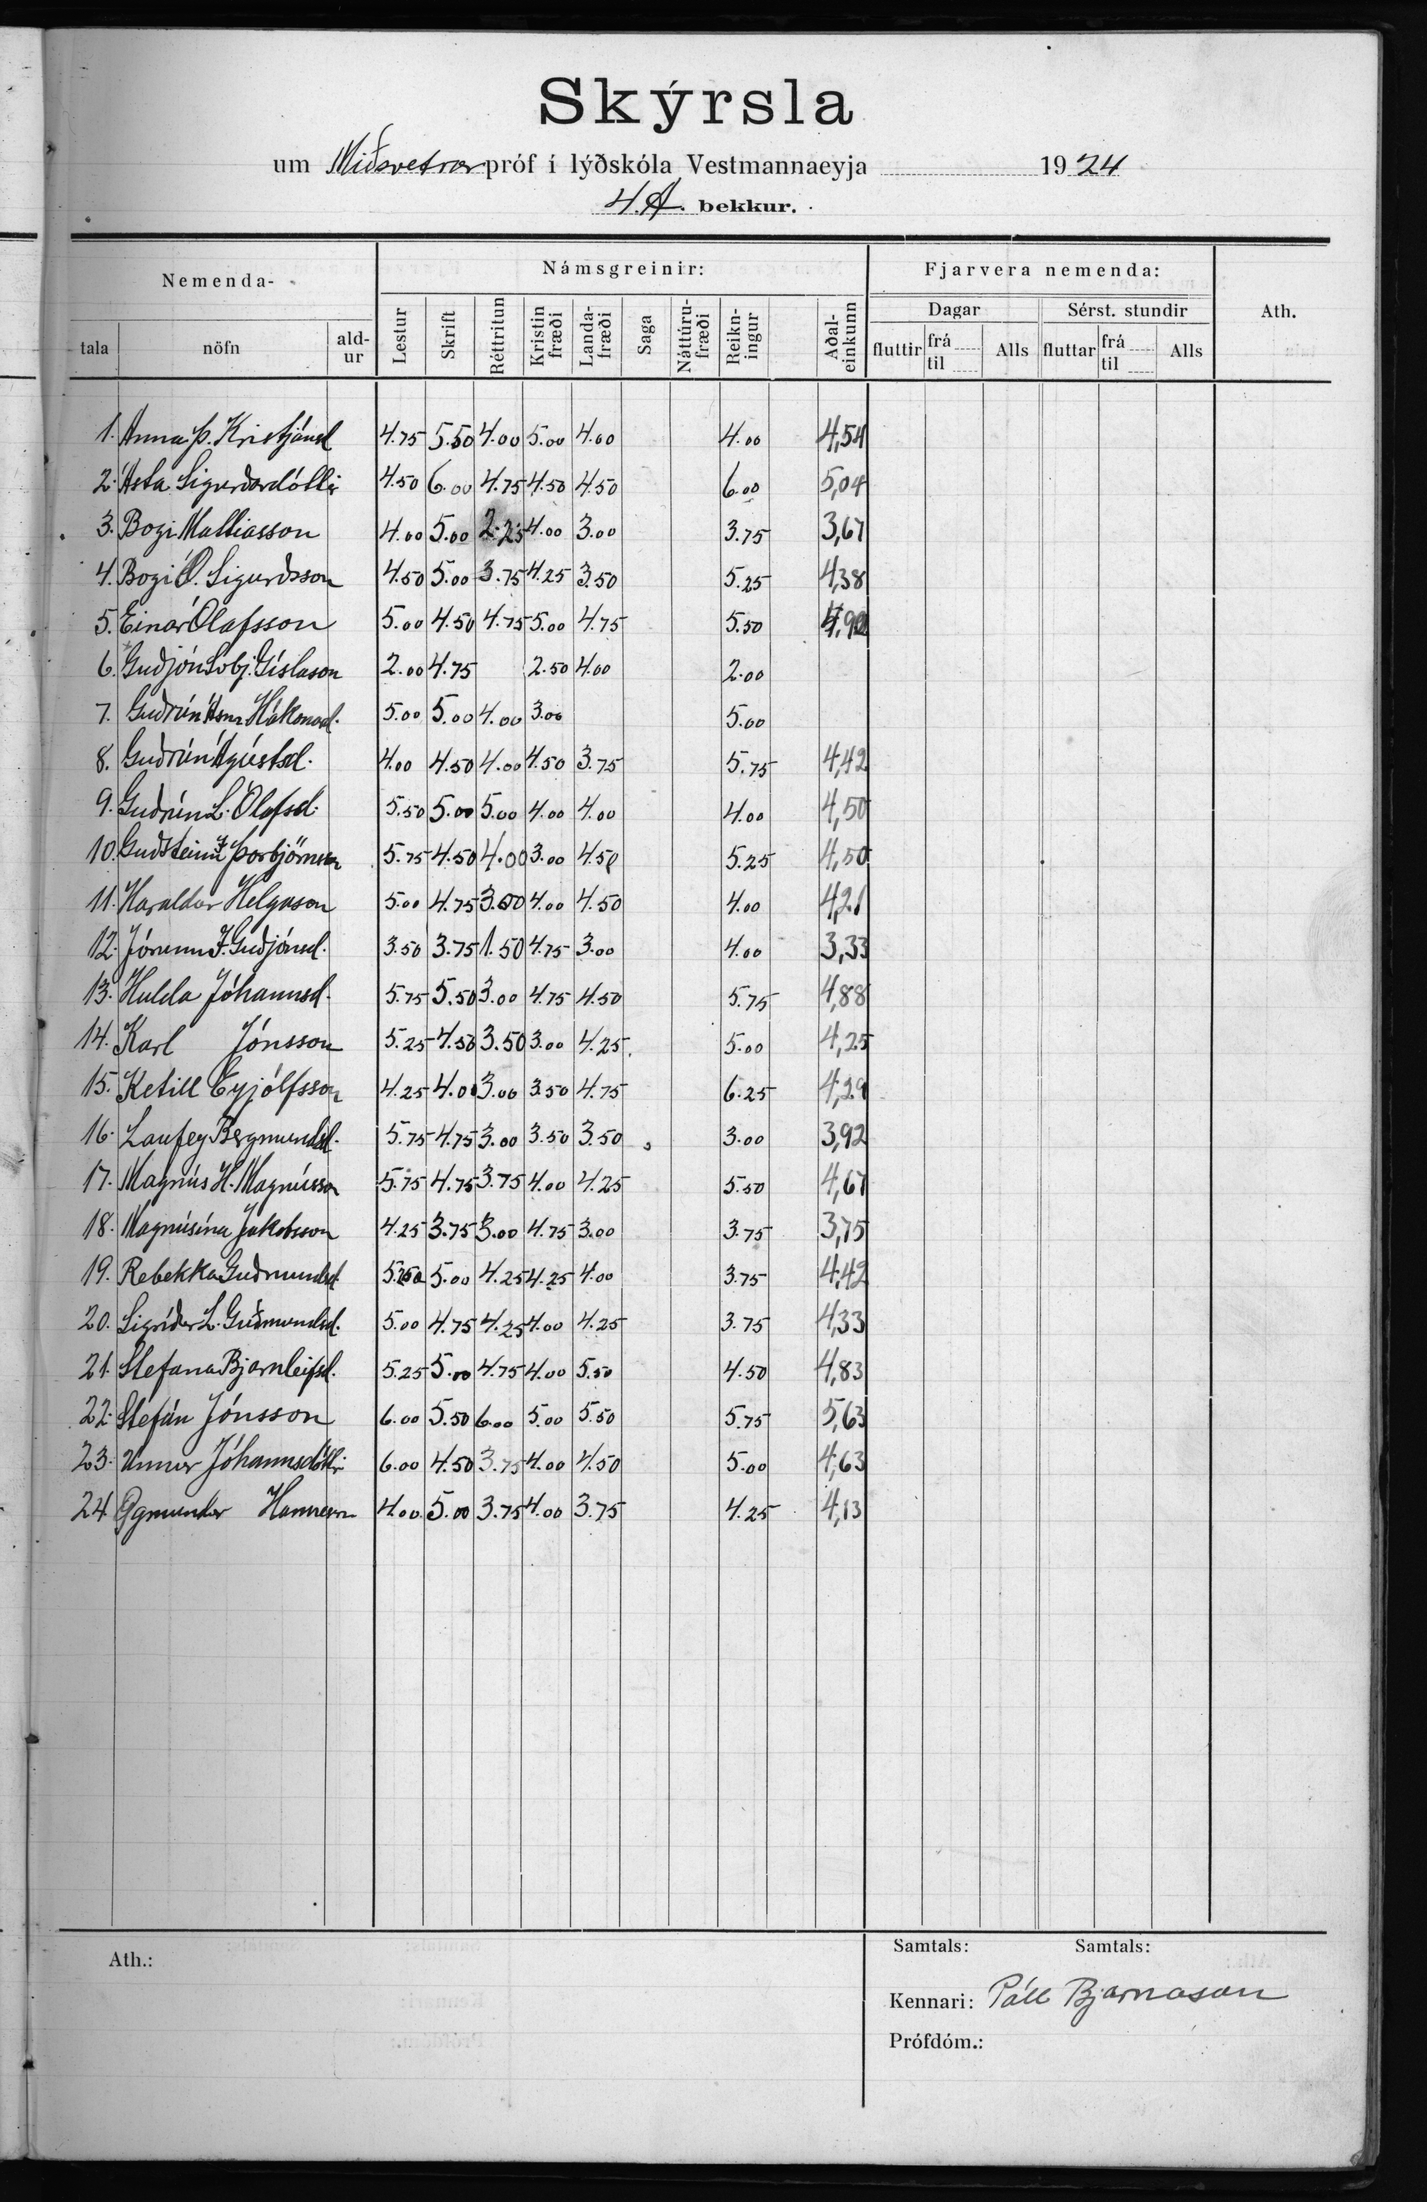 Skýrsla
um Miðsvetrarpróf í lýðskóla Vestmannaeyja 1924
4.A. bekkur.
Nemenda- Námsgreinir: Fjarvera nemenda: Ath.
Dagar Sérst. stundir
tala nöfn ald-ur Lestur Skrift Réttritun Kristin fræði Landa-fræði Saga Náttúru-fræði Reikn-ingur Aðal-einkunn fluttir frá til Alls fluttar frá til Alls
1. Anna Þ. Kristjánsd 4.75 5.50 4.00 5.00 4.00 4.00 4,54
2. Ásta Sigurðardóttir 4.50 6.00 4.75 4.50 4.50 6.00 5,04
3. Bogi Matthiasson 4.00 5.00 2.25 4.00 3.00 3.75 3,67
4. Bogi Ó. Sigurðsson 4.50 5.00 3.75 4.25 3.50 5.25 4,38
5. Einar Ólafsson 5.00 4.50 4.75 5.00 4.75 5.50 4,92
6. Guðjón Svbj. Gíslason 2.00 4.75 2.50 4.00 2.00
7. Guðrún Hákonard. 5.00 5.00 4.00 3.00 5.00
8. Guðrún Ágústsd. 4.00 4.50 4.00 4.50 3.75 5.75 4,42
9. Guðrún L. Ólafsd. 5.50 5.00 5.00 4.00 4.00 4.00 4,50
10. Guðsteinn Þorbjörnsson 5.75 4.50 4.00 3.00 4.50 5.25 4,50
11. Haraldur Helgason 5.00 4.75 3.00 4.00 4.50 4.00 4,21
12. Jórunn I. Guðjónsd. 3.50 3.75 1.50 4.75 3.00 4.00 3,33
13. Hulda Jóhannsd. 5.75 5.50 3.00 4.75 4.50 5.75 4,88
14. Karl Jónsson 5.25 4.50 3.50 3.00 4.25 5.00 4,25
15. Ketill Eyjólfsson 4.25 4.00 3.00 3.50 4.75 6.25 4,29
16. Laufey Bergmundsd. 5.75 4.75 3.00 3.50 3.50 3.00 3,92
17. Magnús H. Magnússon 5.75 4.75 3.75 4.00 4.25 5.50 4,67
18. Magnúsína Jakobsson 4.25 3.75 3.00 4.75 3.00 3.75 3,75
19. Rebekka Guðmundsd. 5.50 5.00 4.25 4.25 4.00 3.75 4,42
20. Sigríður L. Guðmundsd. 5.00 4.75 4.25 4.00 4.25 3.75 4,33
21. Stefana Bjarnleifsd. 5.25 5.00 4.75 4.00 5.50 4.50 4,83
22. Stefán Jónsson 6.00 5.50 6.00 5.00 5.50 5.75 5,63
23. Unnur Jóhannsdóttir 6.00 4.50 3.75 4.00 4.50 5.00 4,63
24. Ögmundur Hannesson 4.00 5.00 3.75 4.00 3.75 4.25 4,13
Ath.: Samtals: Samtals:
Kennari: Páll Bjarnason
Prófdóm.: